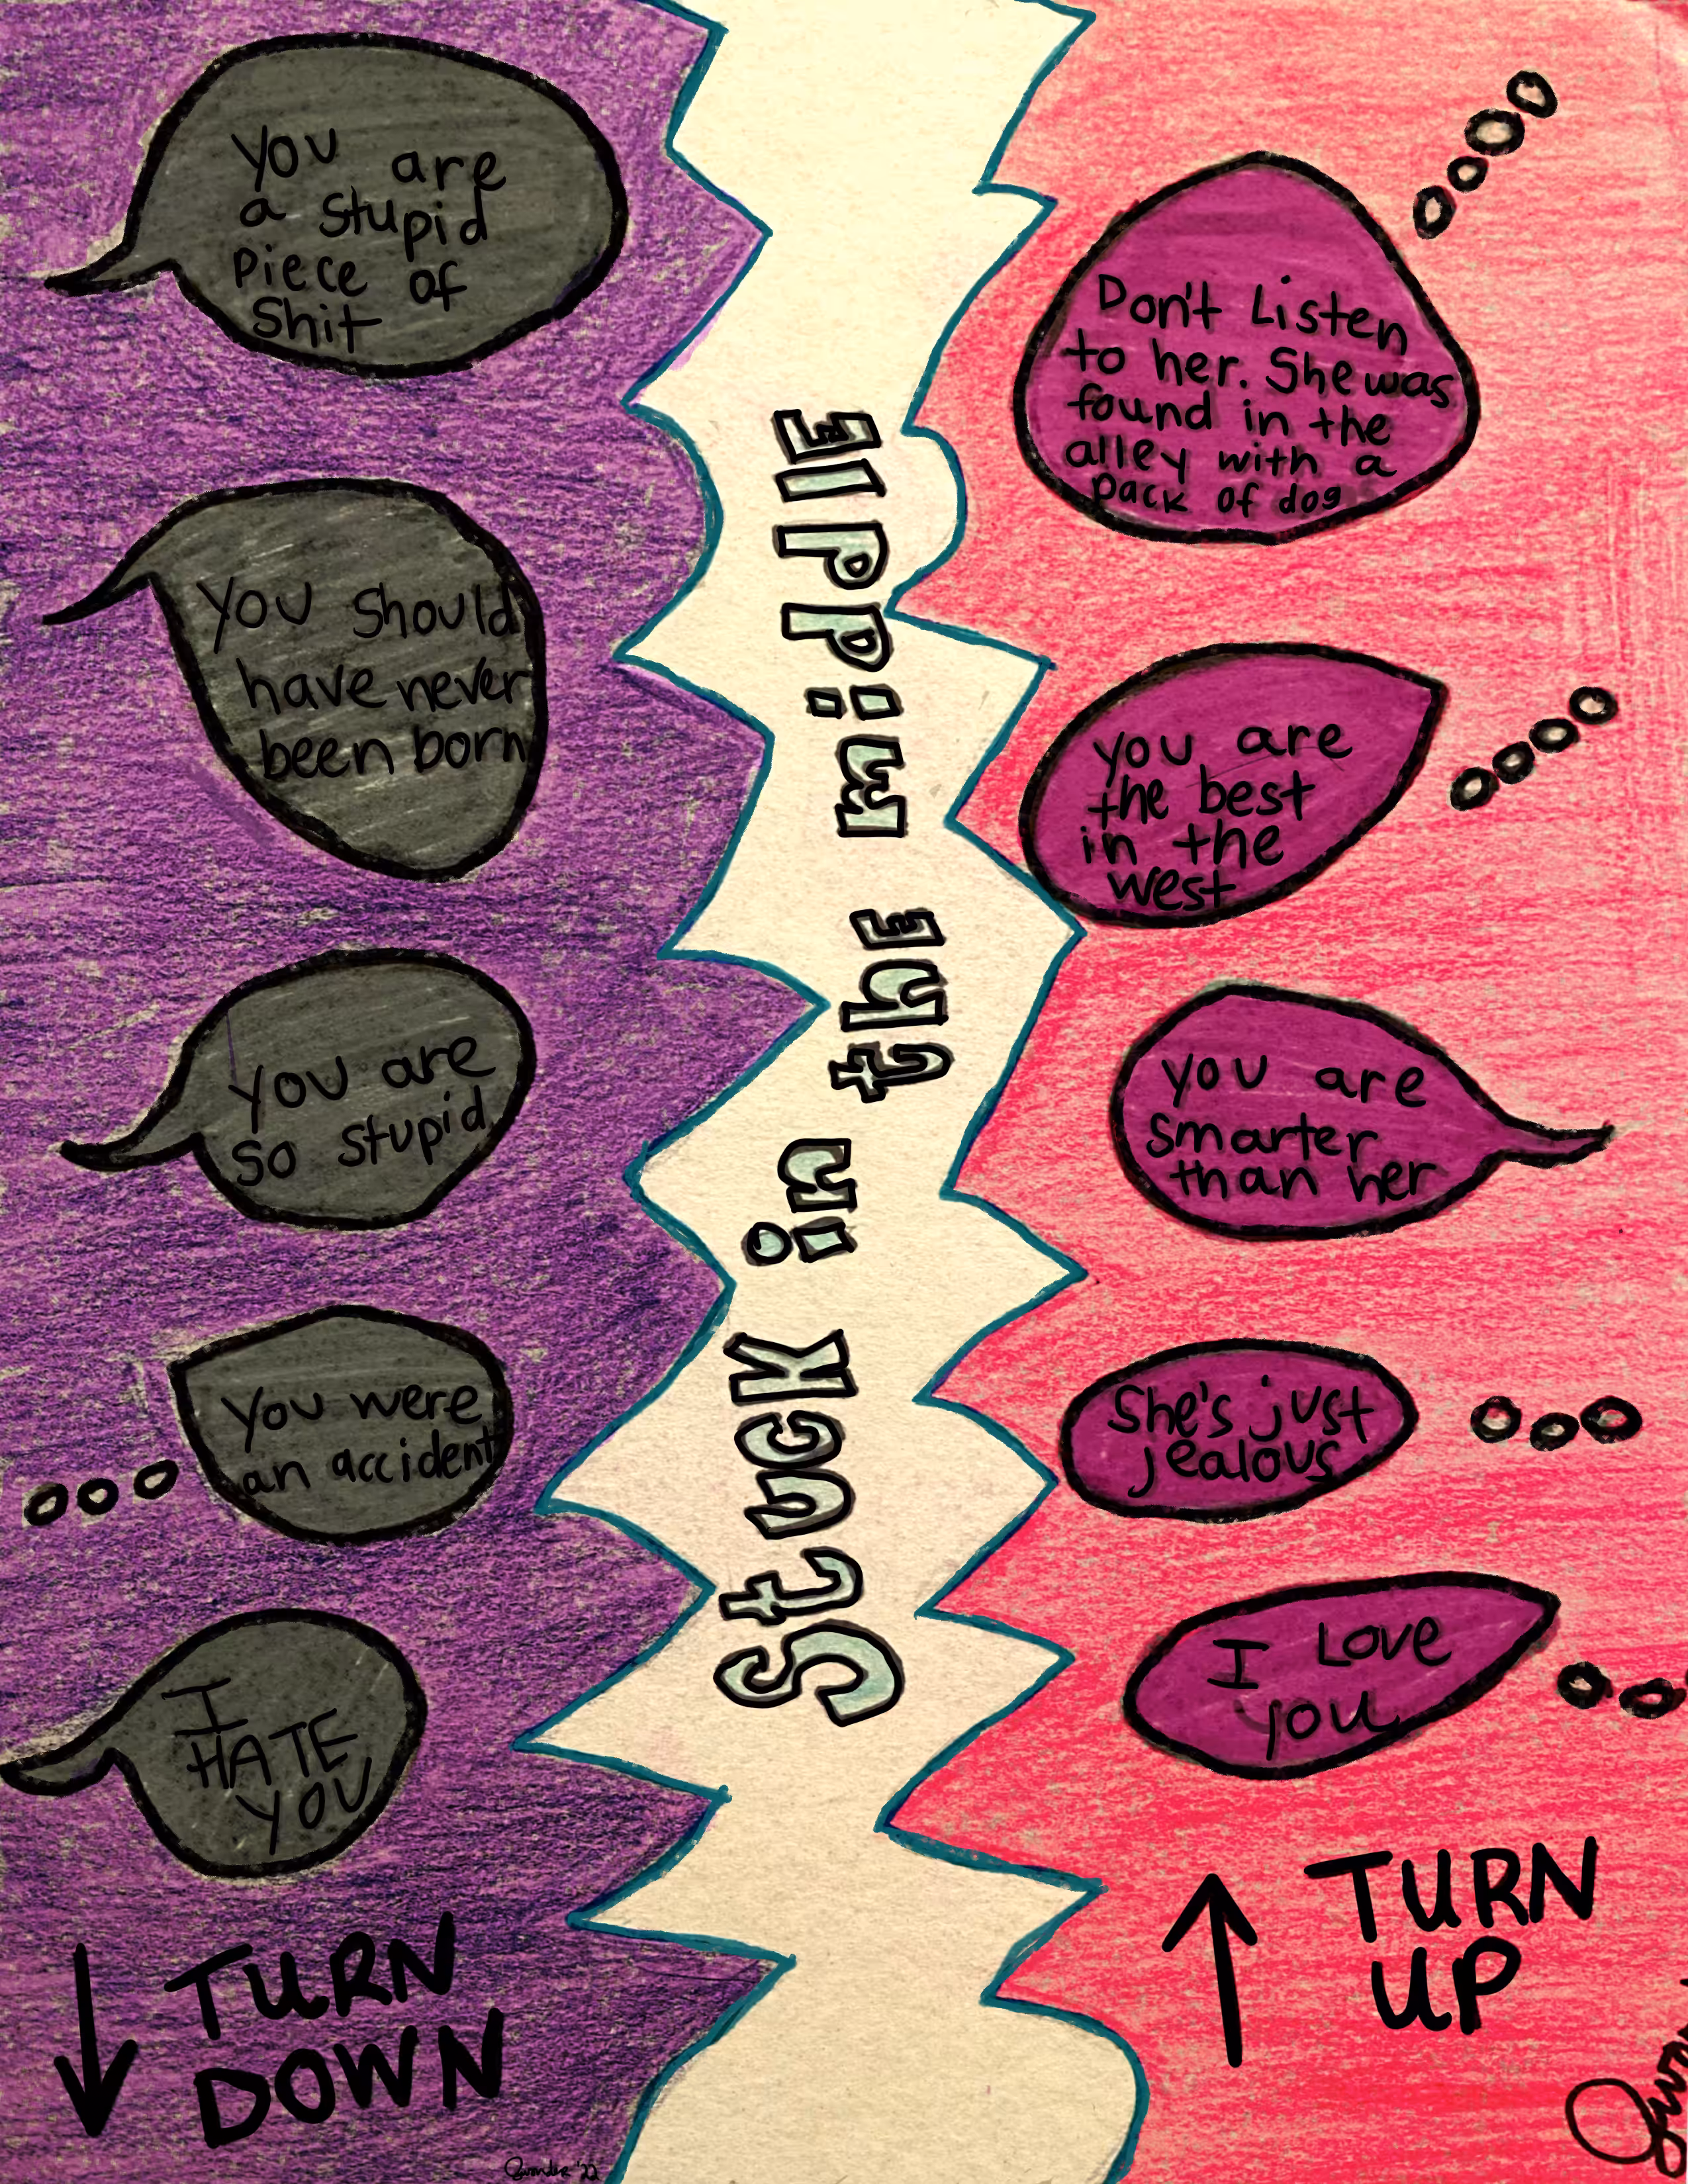 You are
a stupid
piece of
Shit
You should
have never
been born
You are
so stupid
You were
an accident
I
HATE
YOU
TURN
DOWN
Stuck in the middle
Don't Listen
to her. She was
found in the
alley with a
pack of dog
you are
the best
in the
west
you are
smarter
than her
She's just
jealous
I Love
you
TURN
UP
'22